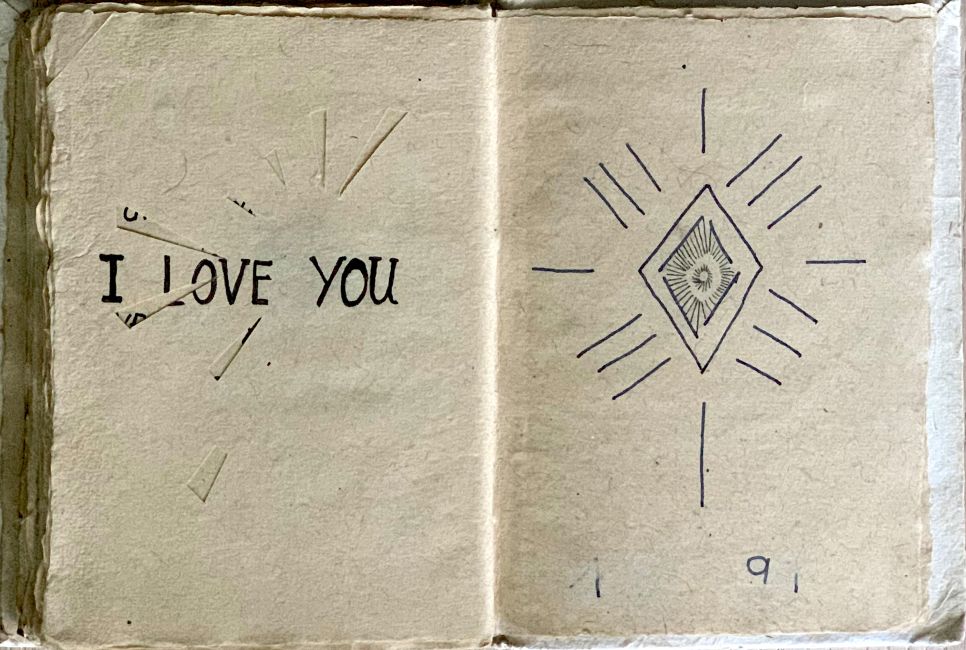 I LOVE YOU
1 91